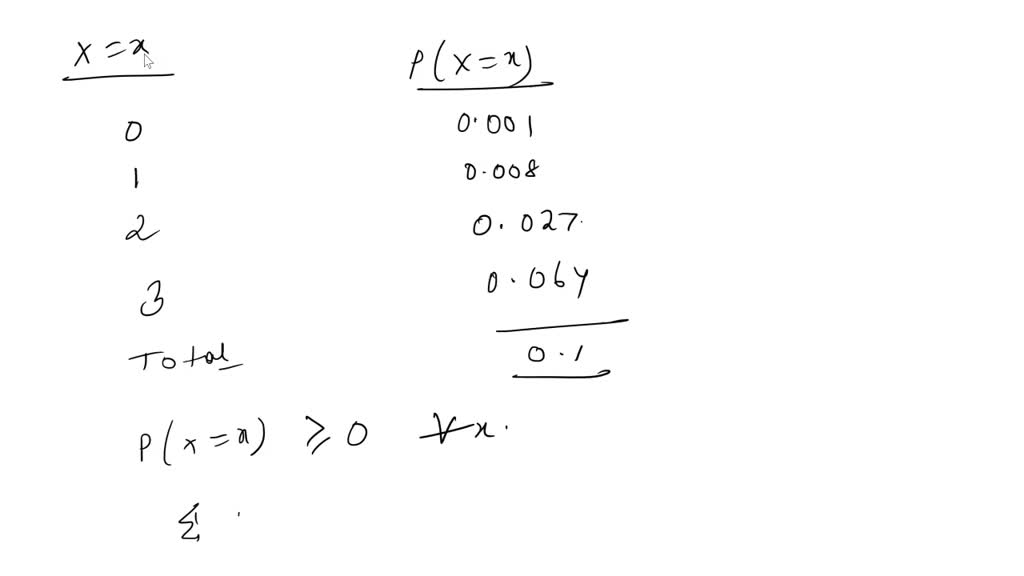 X = x P(X = x)
0 0.001
1 0.008
2 0.027
3 0.064
Total 0.1
P(X = x) ≥ 0 ∀x.
Σ